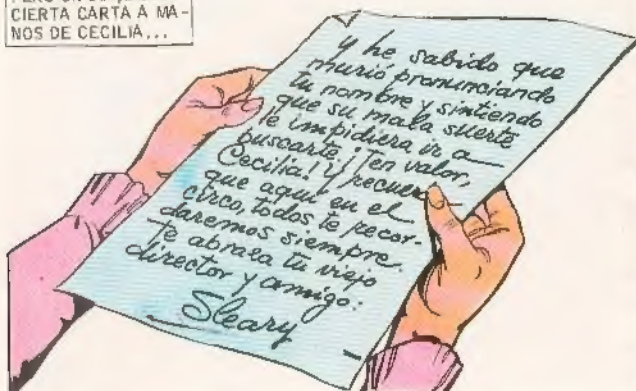 CIERTA CARTA A MA-
NOS DE CECILIA...
y he sabido que
murió pronunciando
tu nombre y sintiendo
que su mala suerte
le impidiera ir a
buscarte. ¡Ten valor,
Cecilia! Y recuerda
que aquí en el
circo, todos te recor-
daremos siempre.
Te abraza tu viejo
director y amigo:
Sleary